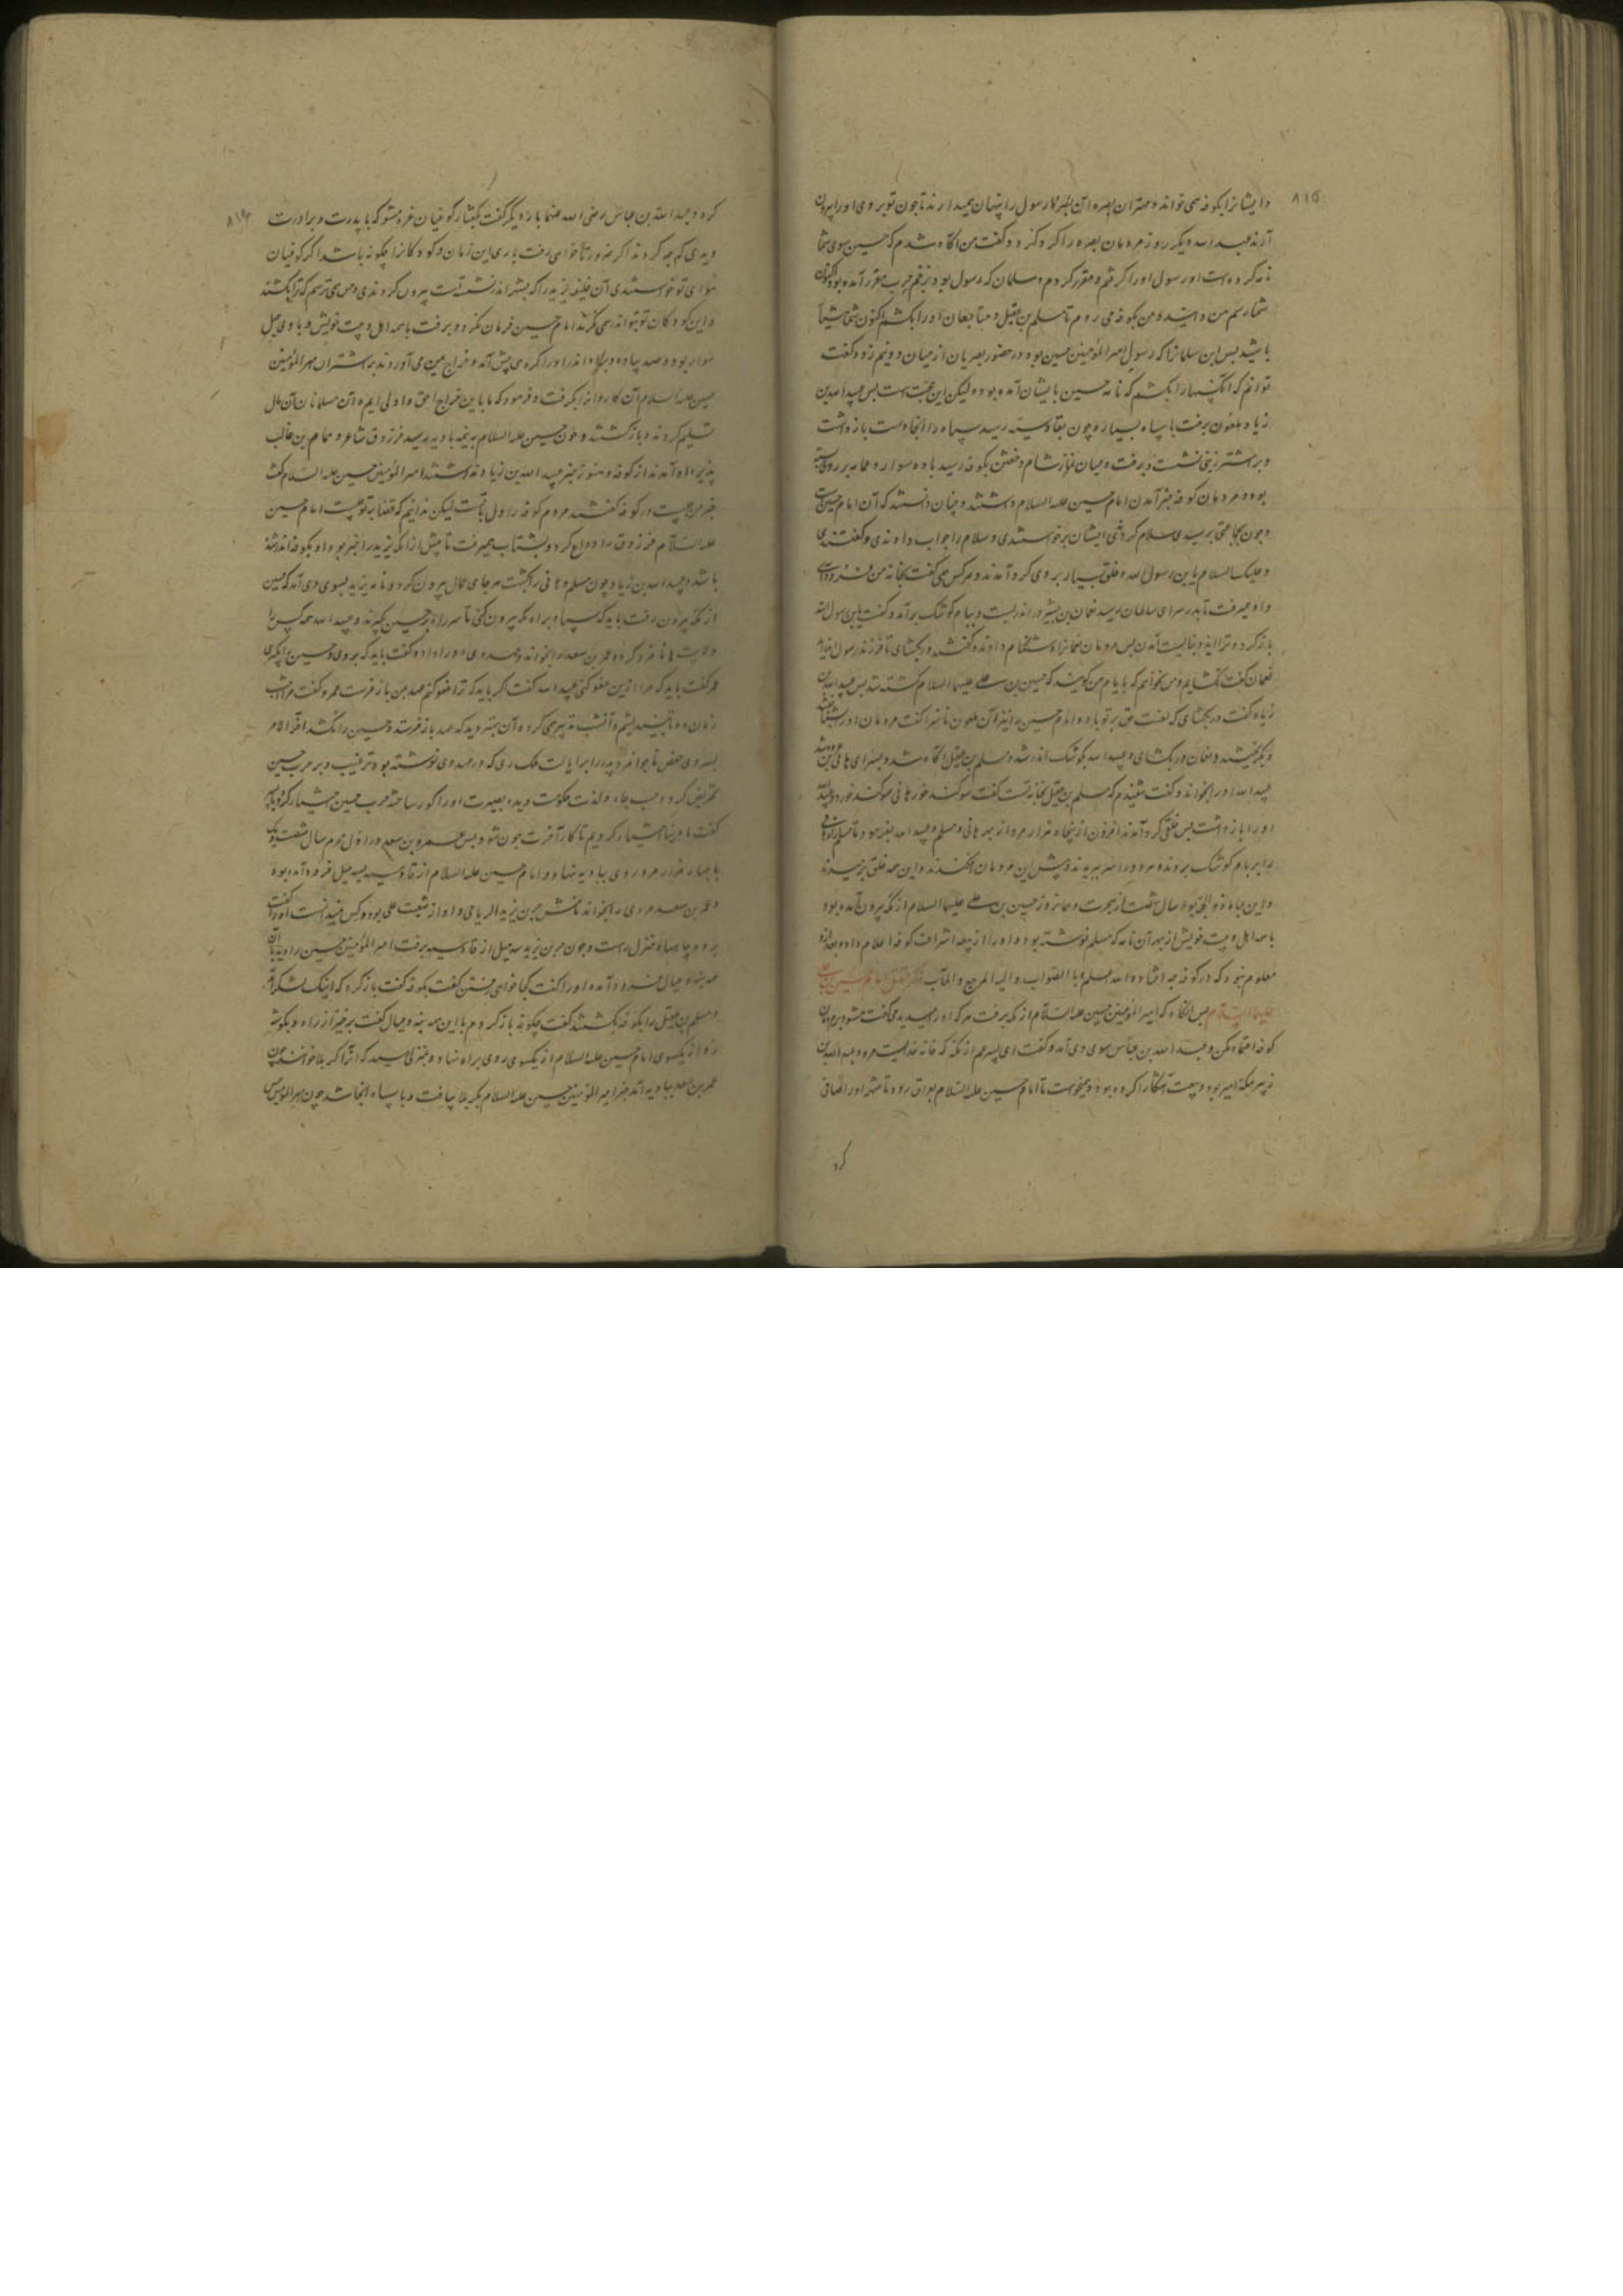 ۸۱۵
و ایشانرا بکوفه همی خواند و مهتران بصره آن رسول را پنهان میدارند تا چون تو بروی او را بیرون
آرند عبید الله دیگر روز مردمان بصره را کرد کرد و گفت من آگاه شدم که حسین سوی شما
نامه کرده است و رسول او را گرفتم و مقرر کردم و سلمان که رسول بود بزخم چوب مقر آمده بود اکنون
من بکوفه می روم تا مسلم بن عقیل و متابعان او را بکشم اکنون شما
باشید پس این سلمانرا که رسول امیر المؤمنین حسین بود در حضور بصریان از میان دو نیم زد و گفت
که نامه حسین بایشان آمده بود ولیکن این حجت است پس عبید الله بن
زیاد ملعون برفت با سپاه بسیار و چون بقادسیه رسید سپاه را آنجا دست بازداشت
و بر اشتر نشست و برفت و میان نماز شام و خفتن بکوفه رسید با ده سوار و عمامه بر روی
بود و مردمان کوفه خبر آمدن امام حسین علیه السلام داشتند و چنان دانستند که آن امام حسین است
و چون بجماعتی برسیدی سلام کردی ایشان برخواستندی و سلام را جواب دادندی و گفتندی
و علیک السلام یا بن رسول الله و خلق بسیار بر وی گرد آمدند و هر کس همی گفت بخانه من فرود آی
و او میرفت تا بدر سرای سلطان رسید نعمان بن بشیر در اندر بست و ببام کوشک برآمد و گفت یا بن رسول الله
باز گرد پس مردمان نعمانرا دشنام دادند و گفتند در بگشای تا فرزند رسول
نعمان گفت نگشایم و من نخواهم که با نام من گویند که حسین بن علی علیهما السلام کشته شد پس عبید الله بن
زیاد گفت در بگشای که لعنت حق بر تو باد
نعمان در بگشای و عبید الله بکوشک اندر شد و مسلم بن عقیل آگاه شد و بسرای هانی بن عروه شد
عبید الله او را بخواند و گفت شنیدم که مسلم بن عقیل بخانه تست گفت سوگند خور هانی سوگند خورد
او را بازداشت پس خلقی گرد آمدند افزون از پنجاه هزار مرد از بهر هانی و مسلم و عبید الله بفرمود تا مسلم را و هانی
را بر بام کوشک بردند و هر دو را سر ببریدند و پیش این مردمان افکندند و این همه خلق
و این بماه ذو الحجه بود سال شصت از هجرت و همانروز حسین بن علی علیهما السلام از مکه بیرون آمده بود
با همه اهل بیت خویش از بهر آن نامه که مسلم نوشته بود و او را از بیعت اشراف کوفه اعلام داده
معلوم نبود که در کوفه چه افتاد و الله اعلم بالصواب و الیه المرجع و المآب ذکر مقتل امام حسین بن علی
علیهما السلام پس آنگاه که امیر المؤمنین حسین علیه السلام از مکه برفت هر که او را میدید می گفت مشو و بر مردمان
کوفه اعتماد مکن و عبد الله بن عباس سوی وی آمد و گفت ای پسر عم از مکه که خانه خدایست مرو و عبد الله بن
زبیر بمکه امیر بود و بیعت آشکارا کرده بود و میخواست تا امام حسین علیه السلام بعراق رود تا مکه او را صافی
کرد
۸۱۶
کرد و عبد الله بن عباس رضی الله عنهما بار دیگر گفت بگفتار کوفیان غره مشو که با پدرت و برادرت
دیدی که چه کردند اگر خواهی رفت باری این زمان و کودکانرا چگونه باشد اگر کوفیان
هوای تو خواستندی آن خلیفه یزید را که بشهر اندر نشسته است بیرون کردندی و من همی ترسم که ترا بکشند
و این کودکان امام حسین فرمان نکرد و برفت با همه اهل بیت خویش و با وی چهل
سوار بود و صد پیاده و براه اندر او را گروهی پیش آمد و خراج یمن می آوردند بر اشتران امیر المؤمنین
حسین علیه السلام آن کاروانرا بگرفت و فرمود که ما باین خراج احق و اولی ایم و آن مسلمانان آن مال
تسلیم کردند و باز گشتند و چون حسین علیه السلام به نیمه بادیه رسید فرزدق شاعر و همام بن غالب
پذیره او آمدند از کوفه و هنوز خبر عبید الله بن زیاد نداشتند امیر المؤمنین حسین علیه السلام گفت
خبر من چیست در کوفه گفتند مردم کوفه را دل با تست لیکن ندانیم که قضا با تو چیست امام حسین
علیه السلام فرزدق را وداع کرد و بشتاب میرفت تا پیش از آنکه یزید را خبر بود او بکوفه اندر شده
باشد و عبید الله بن زیاد چون مسلم و هانی را بکشت هر جای عمال بیرون کرد و نامه یزید بسوی وی آمد که حسین
از مکه بیرون رفت باید که سپاه براه مکه بیرون کنی تا سر راه بر حسین بگیرند و عبید الله
ولایت ری نامزد کرد عمر بن سعد را بخواند و عهد ری او را داد و گفت باید که بروی و حسین را بگیری
عمر گفت باید که مرا ازین عفو کنی عبید الله گفت اگر باید که ترا عفو کنم عهد من باز فرست عمرو گفت مرا امشب
زمان ده تا بیندیشم و آنشب تدبیر همی کرد و آن بهتر دید که عهد باز فرستد و حسین را نکشد آخر الامر
پسر وی حفص ناجوانمرد پدر را برایالت ملک ری که در عهد وی نوشته بود ترغیب و بر حرب حسین
تحریض کرد و حب جاه و لذت حکومت دیده بصیرت او را کور ساخته حرب حسین اختیار کرد
گفت ما دنیا اختیار کردیم تا کار آخرت چون شود پس عمرو بن سعد در اول محرم سال شصت و یک
با چهار هزار مرد روی ببادیه نهاد و امام حسین علیه السلام از قادسیه بسه میل فرود آمده بود
و عمر بن سعد مردی را بخواند نامش حر بن یزید الریاحی و او از شیعت علی بود و کس ندانست
برو و چون حر بن یزید سه میل از قادسیه برفت امیر المؤمنین حسین را دید با آن
بنه و عیال فرود آمده او را گفت کجا خواهی رفتن گفت بکوفه گفت باز گرد که اینک لشکر
و مسلم بن عقیل را بکوفه بکشتند گفت چگونه باز گردم با این همه بنه و عیال گفت برخیز از راه
امام حسین علیه السلام از یکسوی روی براه نهاد و بمنزلی رسید که آنرا کربلا خوانند چون
عمر بن سعد ببادیه آمد خبر امیر المؤمنین حسین علیه السلام بکربلا یافت و با سپاه آنجا شد چون امیر المؤمنین